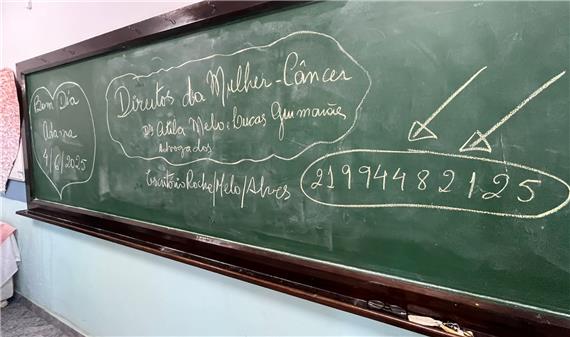 Bom Dia
Adama
4/6/2025
Direitos da Mulher-Câncer
Drs Atila Melo e Lucas Guimarães
Advogados
Escritório Rocha/Melo/Alves
21994482125